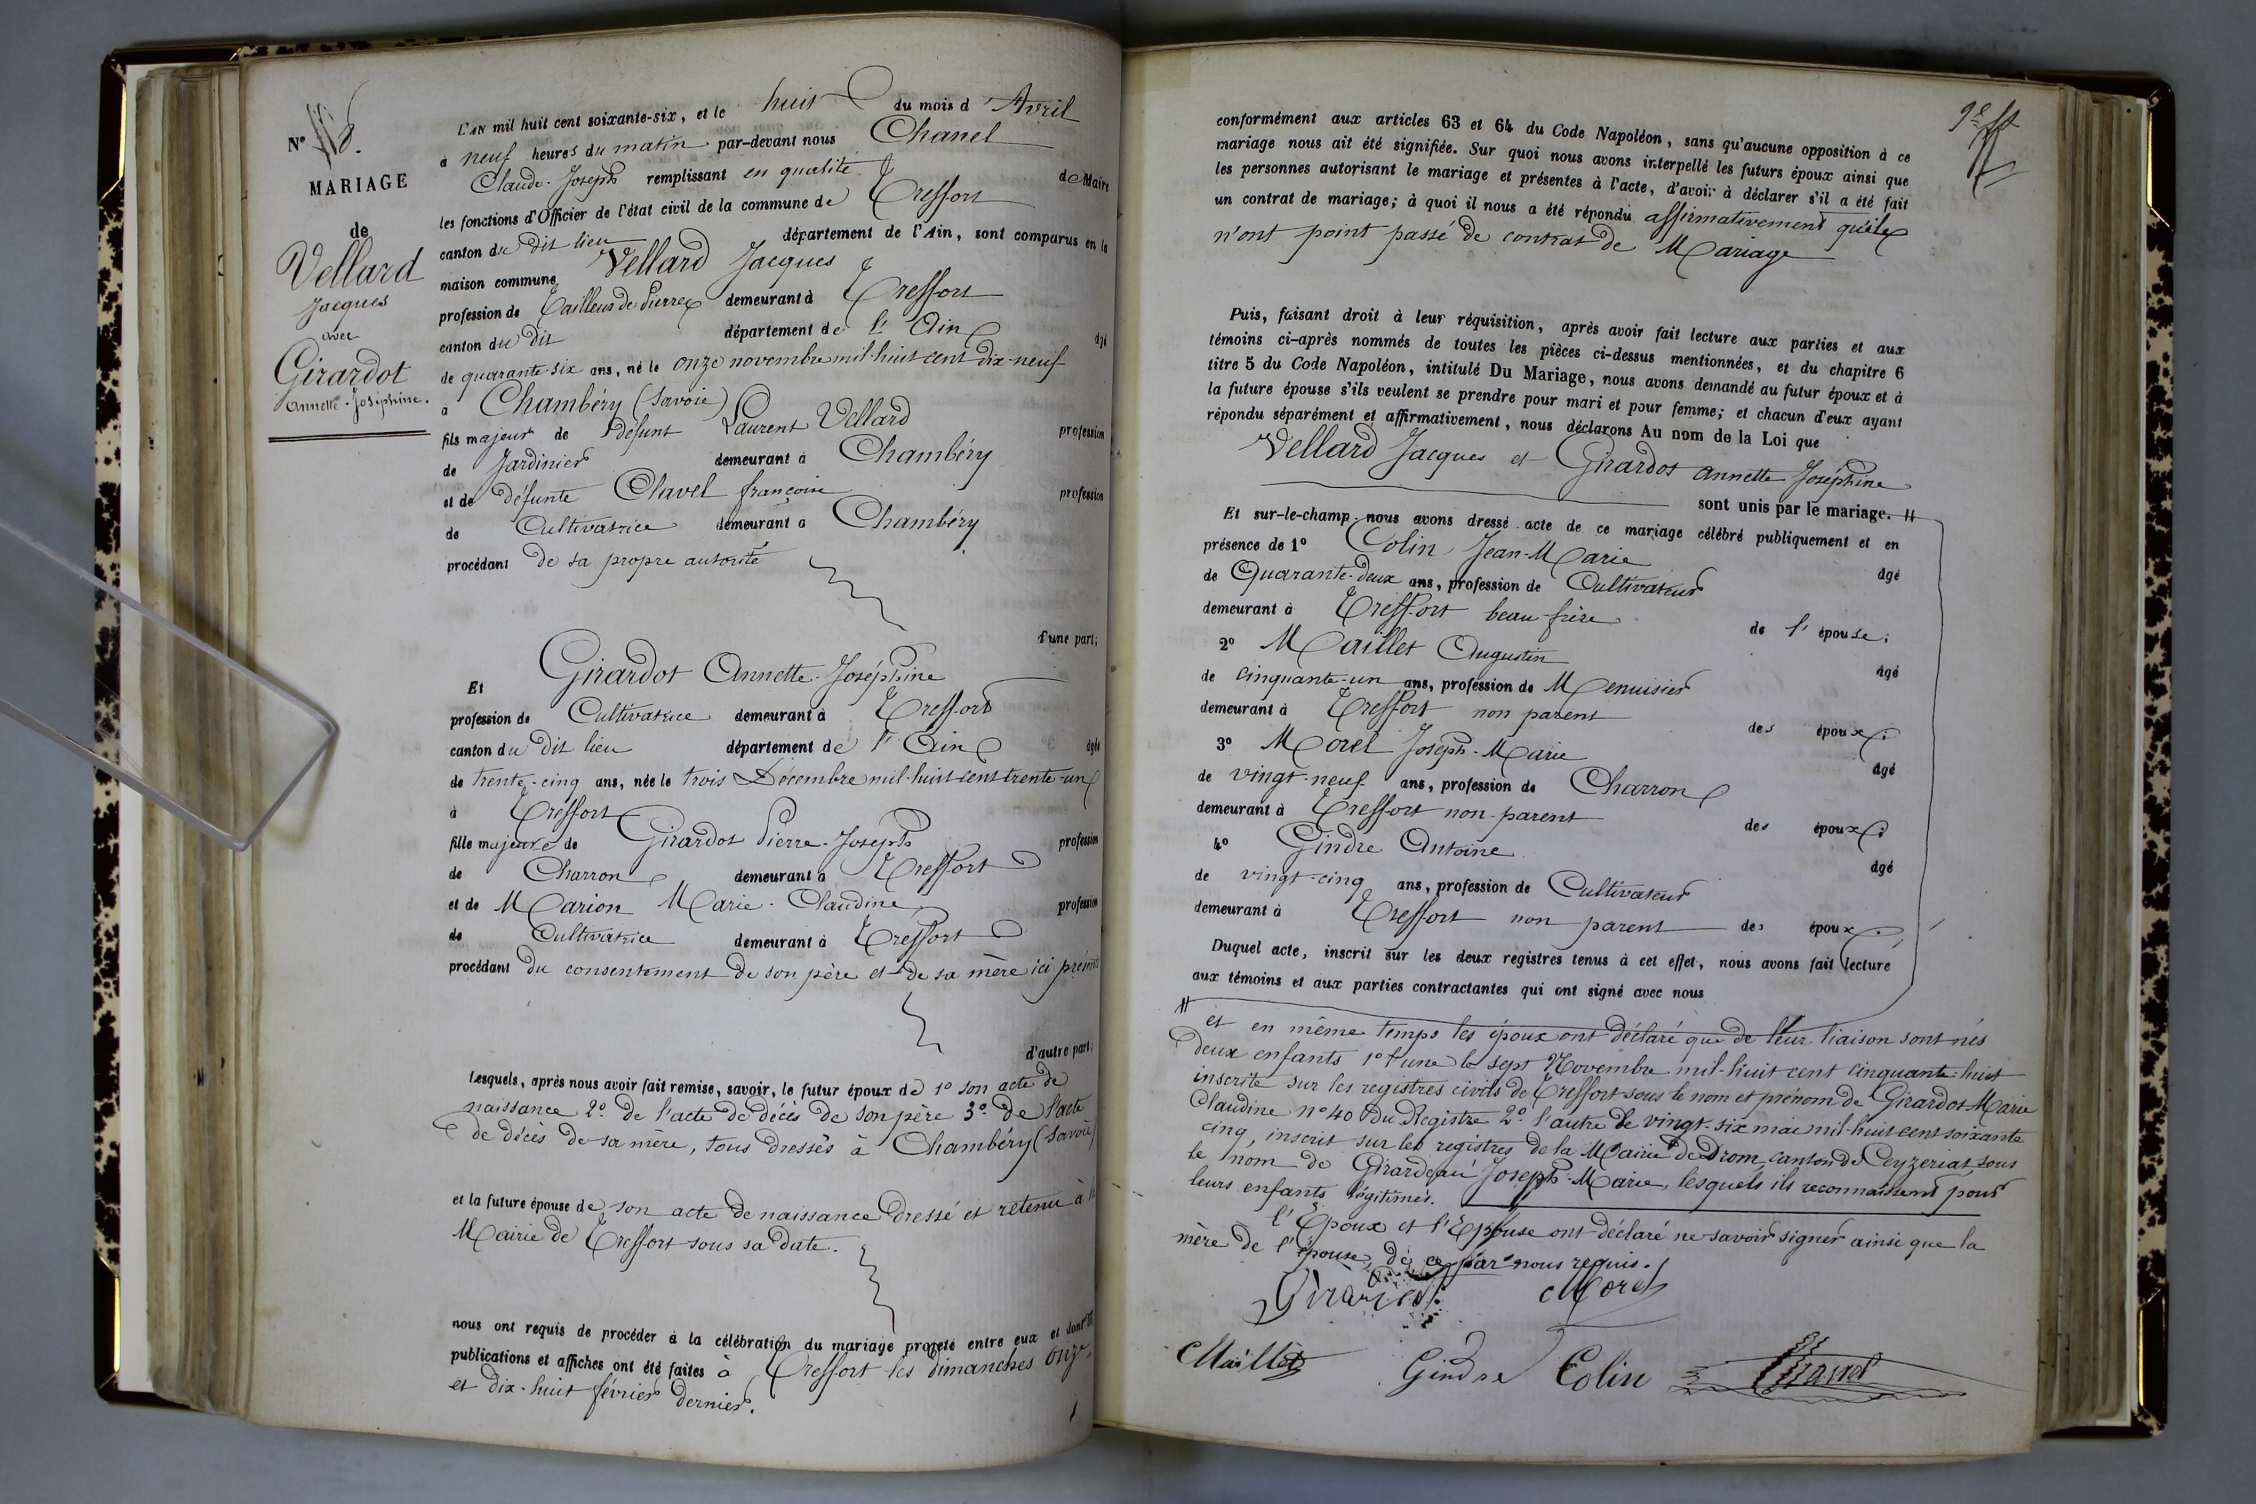 N° 8.
MARIAGE
de
Vellard
Jacques
avec
Girardot
Annette-Joséphine.
L'AN mil huit cent soixante-six, et le huit du mois d'Avril
à neuf heures du matin par-devant nous Chanel
Claude-Joseph remplissant en qualité de Maire
les fonctions d'Officier de l'état civil de la commune de Treffort
canton du dit lieu département de l'Ain, sont comparus en la
maison commune Vellard Jacques
profession de Tailleur de Pierres demeurant à Treffort
canton du dit département de l'Ain âgé
de quarante-six ans, né le onze novembre mil-huit-cent dix-neuf
à Chambéry (Savoie)
fils majeur de défunt Laurent Vellard profession
de Jardinier demeurant à Chambéry
et de défunte Clavel françoise profession
de Cultivatrice demeurant à Chambéry
procédant de sa propre autorité
d'une part;
Et Girardot Annette-Joséphine
profession de Cultivatrice demeurant à Treffort
canton du dit lieu département de l'Ain âgée
de trente-cinq ans, née le trois Décembre mil-huit cent trente-un
à Treffort
fille majeure de Girardot Pierre-Joseph profession
de Charron demeurant à Treffort
et de Marion Marie-Claudine profession
de Cultivatrice demeurant à Treffort
procédant du consentement de son père et de sa mère ici présents
d'autre part;
Lesquels, après nous avoir fait remise, savoir, le futur époux de 1° son acte de
naissance 2° de l'acte de décès de son père 3° de l'acte
de décès de sa mère, tous dressés à Chambéry (Savoie)
et la future épouse de son acte de naissance dressé et retenu à la
Mairie de Treffort sous sa date.
nous ont requis de procéder à la célébration du mariage projeté entre eux et dont les
publications et affiches ont été faites à Treffort les dimanches onze
et dix-huit février dernier.
conformément aux articles 63 et 64 du Code Napoléon, sans qu'aucune opposition à ce
mariage nous ait été signifiée. Sur quoi nous avons interpellé les futurs époux ainsi que
les personnes autorisant le mariage et présentes à l'acte, d'avoir à déclarer s'il a été fait
un contrat de mariage; à quoi il nous a été répondu affirmativement qu'ils
n'ont point passé de contrat de Mariage
Puis, faisant droit à leur réquisition, après avoir fait lecture aux parties et aux
témoins ci-après nommés de toutes les pièces ci-dessus mentionnées, et du chapitre 6
titre 5 du Code Napoléon, intitulé Du Mariage, nous avons demandé au futur époux et à
la future épouse s'ils veulent se prendre pour mari et pour femme; et chacun d'eux ayant
répondu séparément et affirmativement, nous déclarons Au nom de la Loi que
Vellard Jacques et Girardot Annette Joséphine
sont unis par le mariage. #
Et sur-le-champ nous avons dressé acte de ce mariage célébré publiquement et en
présence de 1° Colin Jean-Marie âgé
de Quarante-deux ans, profession de Cultivateur
demeurant à Treffort beau-frère de l'épouse;
2° Maillet Augustin âgé
de cinquante-un ans, profession de Menuisier
demeurant à Treffort non parent des époux;
3° Morel Joseph-Marie âgé
de vingt-neuf ans, profession de Charron
demeurant à Treffort non-parent des époux;
4° Gindre Antoine âgé
de vingt-cinq ans, profession de Cultivateur
demeurant à Treffort non parent des époux.
Duquel acte, inscrit sur les deux registres tenus à cet effet, nous avons fait lecture
aux témoins et aux parties contractantes qui ont signé avec nous
# et en même temps les époux ont déclaré que de leur liaison sont nés
deux enfants 1° l'une le sept Novembre mil-huit cent cinquante-huit
inscrite sur les registres civils de Treffort sous le nom et prénom de Girardot Marie
Claudine n° 40 du Registre 2° l'autre le vingt-six mai mil-huit cent soixante
cinq, inscrit sur les registres de la Mairie de Drom, canton de Ceyzeriat, sous
le nom de Girardeau Joseph-Marie, lesquels ils reconnaissent pour
leurs enfants légitimes.
l'Epoux et l'Epouse ont déclaré ne savoir signer ainsi que la
mère de l'épouse, de ce par nous requis.
Girardot Morel
Maillet Gindre Colin Chanel